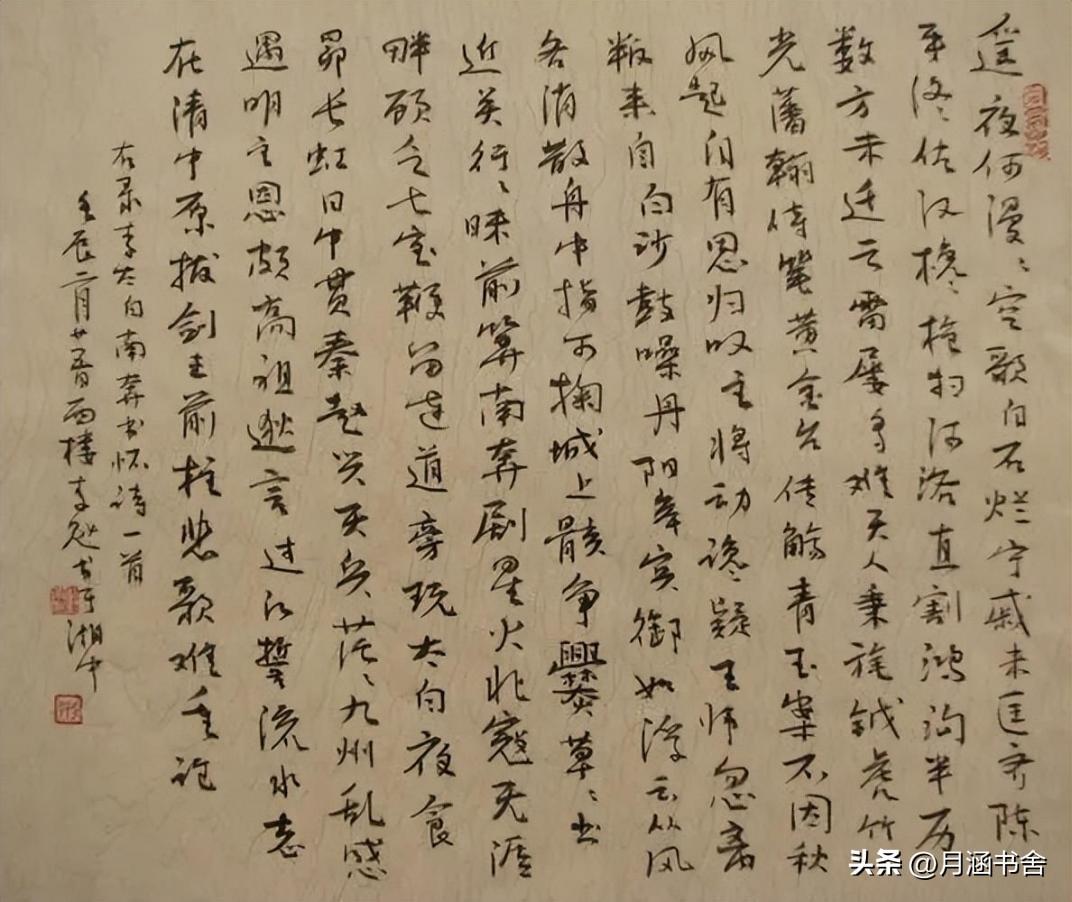 遥夜何漫々空歌白石烂宁戚未匡齐陈
平终佐汉欃枪扫河洛直割鸿沟半历
数方未迁云雷屡多难天人秉旄钺虎竹
光藩翰侍笔黄金台传觞青玉案不因秋
风起自有思归叹主将动谗疑王师忽离
叛来自白沙鼓噪丹阳岸宾御如浮云从风
各消散舟中指可掬城上骸争爨草々出
近关行々昧前算南奔剧星火北寇无涯
畔顾乏七宝鞭留连道旁玩太白夜食
昴长虹日中贯秦赵兴天兵茫々九州乱感
遇明主恩颇高祖逖言过江誓流水志
在清中原拔剑击前柱悲歌难重论
右录李太白南奔书怀诗一首
壬辰二月廿西楼李书于湖中
头条 @月涵书舍